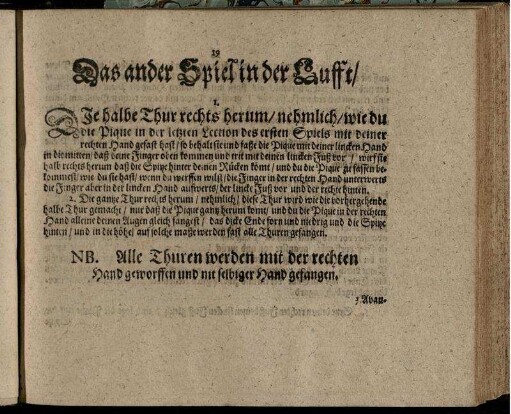 29
Das ander Spiel in der Lufft/
1.
DIe halbe Thur rechts herum/ nehmlich/ wie du
die Pique in der letzten Lection des ersten Spiels mit deiner
rechten Hand gefast hast/ so behalt sie und fasse die Pique mit deiner lincken Hand
in die mitten/ daß deine Finger oben kommen und trit mit deinen lincken Fuß vor/ wirf sie
halb rechts herum daß die Spitze hinter deinen Rücken komt/ und du die Pique zu fassen be-
kommest/ wie du sie hast/ wenn du werffen wilst/ die Finger in der rechten Hand unterwerts
die Finger aber in der lincken Hand aufwerts/ der lincke Fuß vor und der rechte hinten.
2. Die gantze Thur rechts herum/ nehmlich/ diese Thur wird wie die vorhergehende
halbe Thur gemacht/ nur daß die Pique gantz herum komt/ und du die Pique in der rechten
Hand alleine deinen Augen gleich fangest/ das dicke Ende forn und niedrig und die Spitze
hinten/ und in die höhe/ auf solche masse werden fast alle Thuren gefangen.
NB. Alle Thuren werden mit der rechten
Hand geworffen und mit selbiger Hand gefangen.
3. Avan-